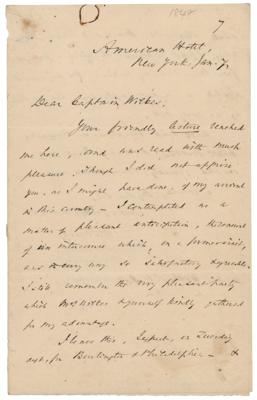 1842
7
American Hotel,
New York, Jan. 7.
Dear Captain Wilkes,
Your friendly lecture reached
me here, and was read with much
pleasure, though I did not apprise
you, as I might have done, of my arrival
in this country – I contemplated as a
matter of pleasant anticipation, the renewal
of an intercourse which, on a former visit,
was every way so satisfactory & agreeable.
I still remember the very pleasant party
which Mrs. Wilkes & yourself kindly gathered
for my advantage.
I leave this, I expect, on Tuesday
next, for Burlington & Philadelphia – &